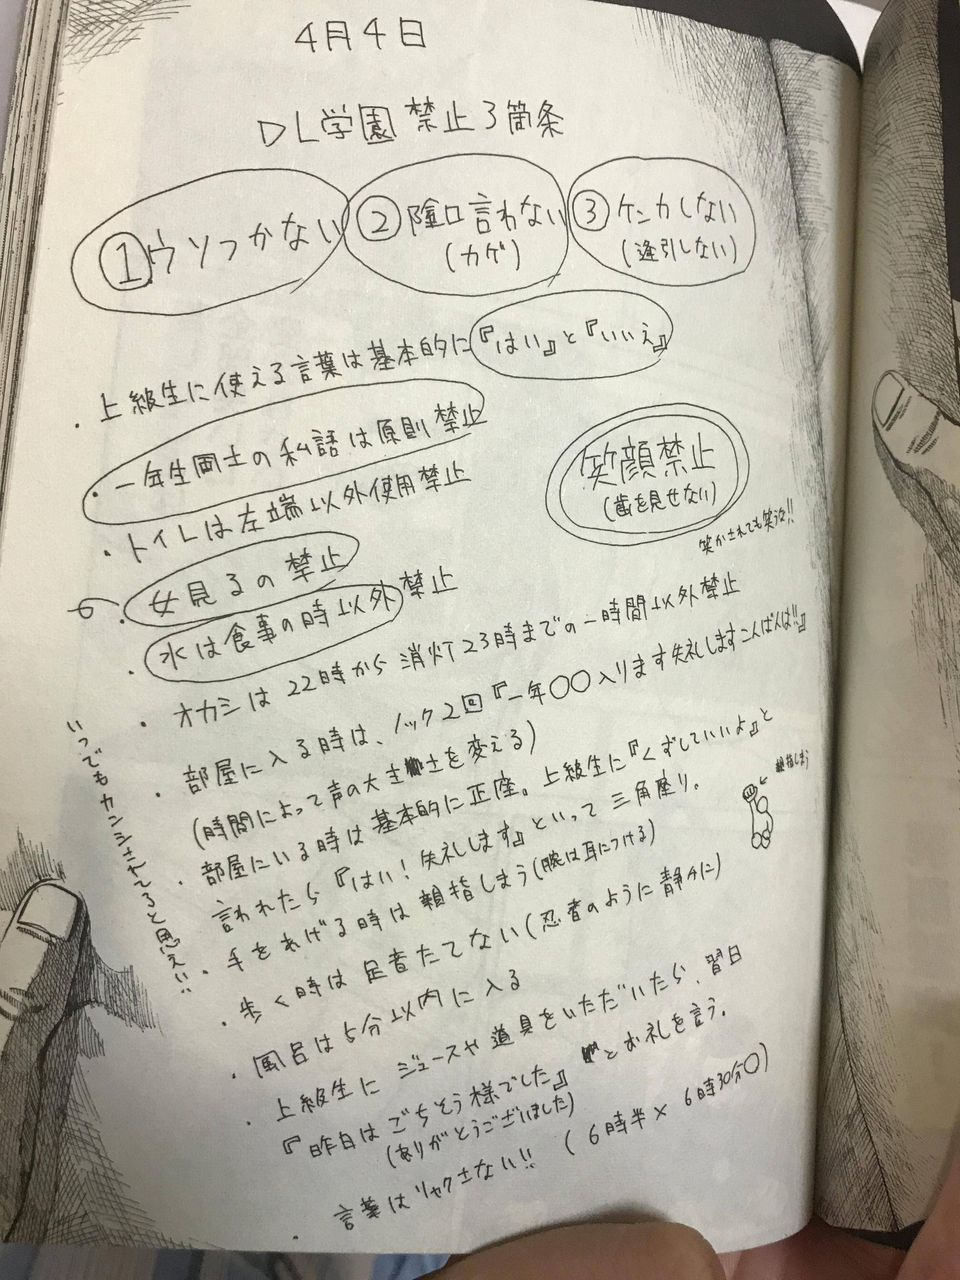 4月4日
DL学園 禁止3箇条
①ウソつかない
②陰口言わない
(カゲ)
③ケンカしない
(逢引しない)
・上級生に使える言葉は基本的に『はい』と『いいえ』
・一年生同士の私語は原則禁止
・トイレは左端以外使用禁止
笑顔禁止
(歯を見せない)
笑かされても笑うな!!
・女見るの禁止
・水は食事の時以外禁止
・オカシは22時から消灯23時までの一時間以外禁止
・部屋に入る時は、ノック2回『一年○○入ります失礼しますこんばんは!!』
(時間によって声の大きさを変える)
・部屋にいる時は基本的に正座。上級生に『くずしていいよ』と
言われたら『はい!失礼します』といって三角座り。
・手をあげる時は親指しまう(腕は耳につける)
親指しまう
・歩く時は足音たてない(忍者のように静かに)
・風呂は5分以内に入る
・上級生にジュースや道具をいただいたら、翌日
『昨日はごちそう様でした』とお礼を言う。
(ありがとうございました)
・言葉はリャクさない!! (6時半× 6時30分○)
いつでもカンシされてると思え!!